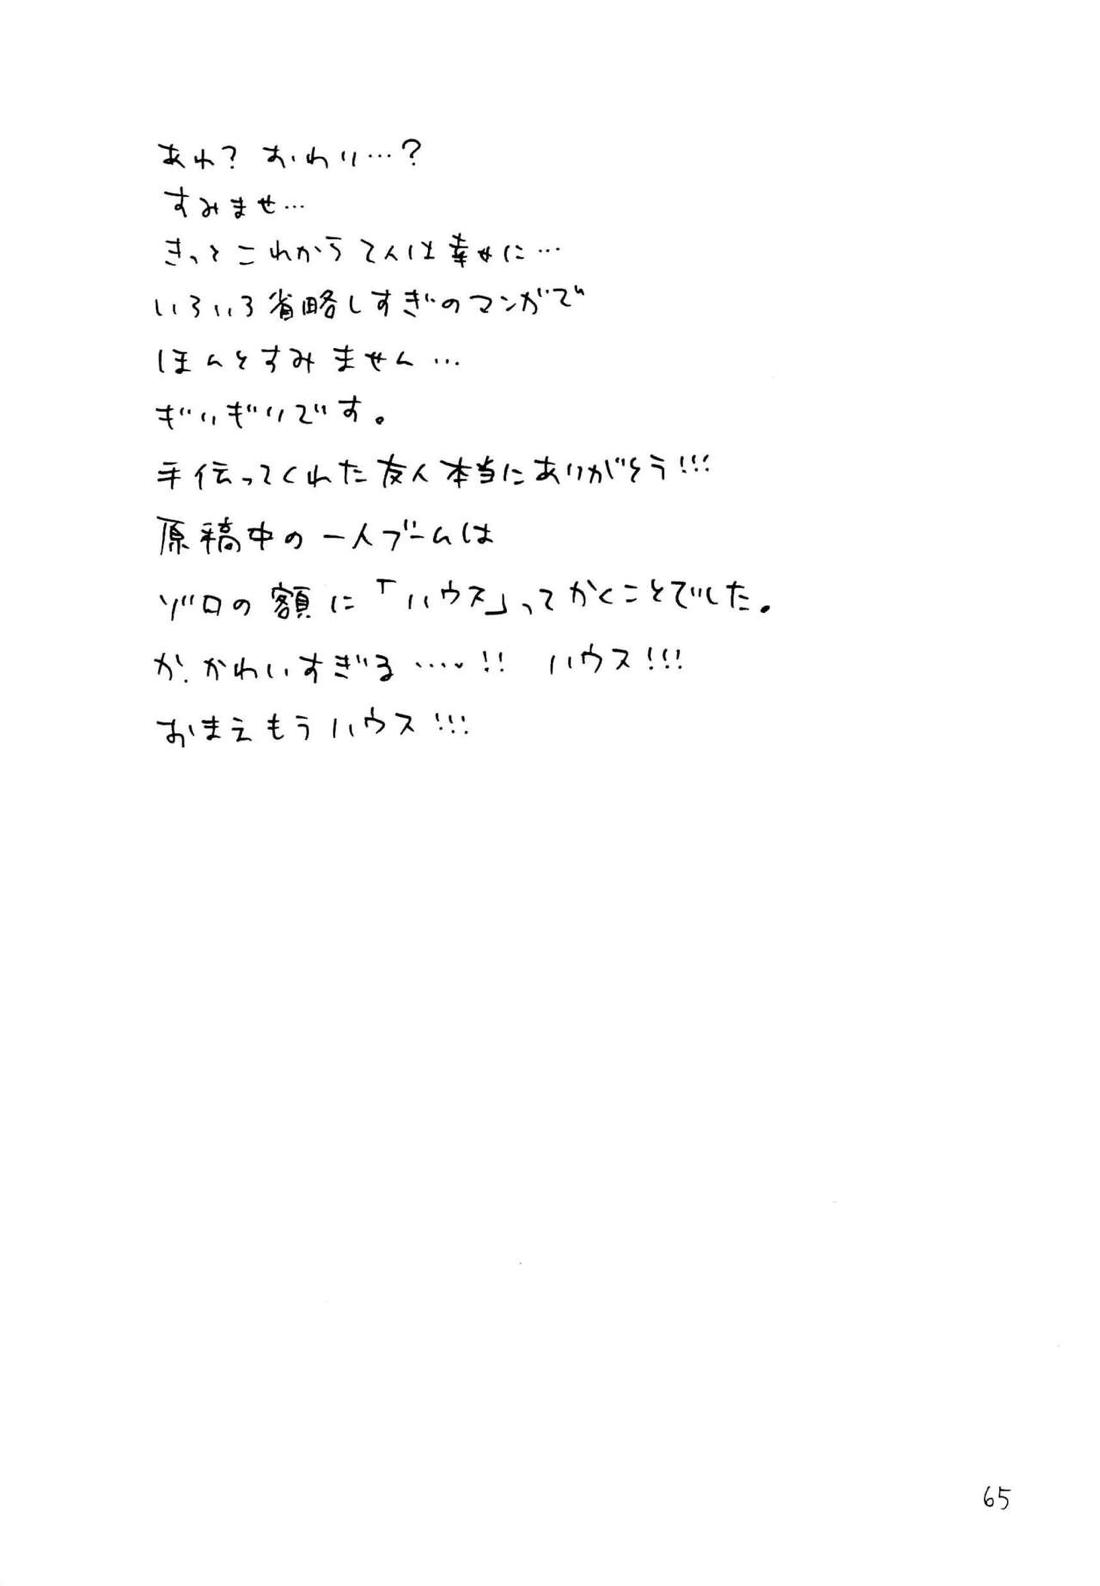 あれ？ おわり…？
すみませ…
きっとこれから2人は幸せに…
いろいろ省略しすぎのマンガで
ほんとすみません…
ぎりぎりです。
手伝ってくれた友人本当にありがとう!!!
原稿中の一人ブームは
ゾロの額に「ハウス」ってかくことでした。
か、かわいすぎる……!! ハウス!!!
おまえもうハウス!!!
65